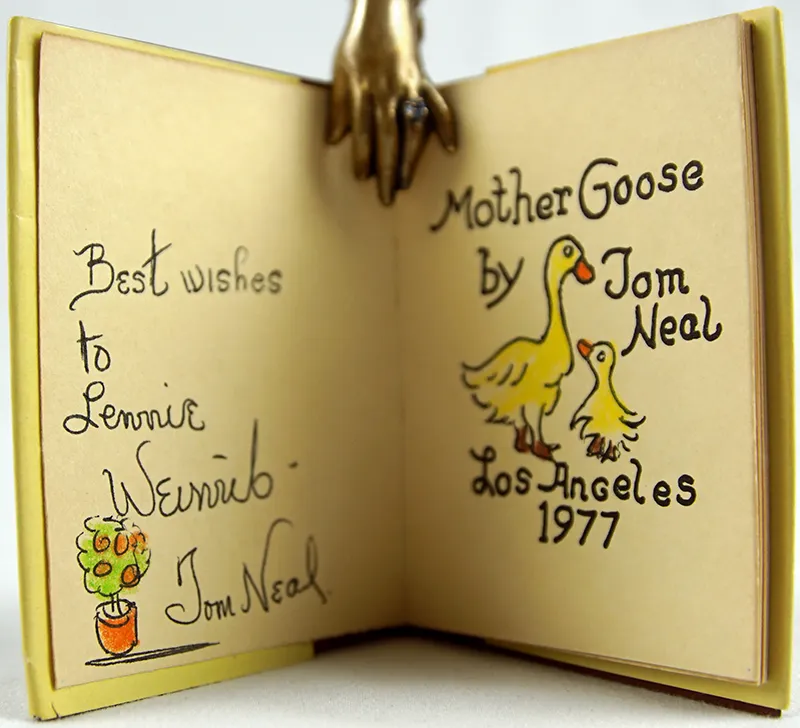 Best wishes
to
Lennie
Weinrib -
Tom Neal
Mother Goose
by Tom
Neal
Los Angeles
1977